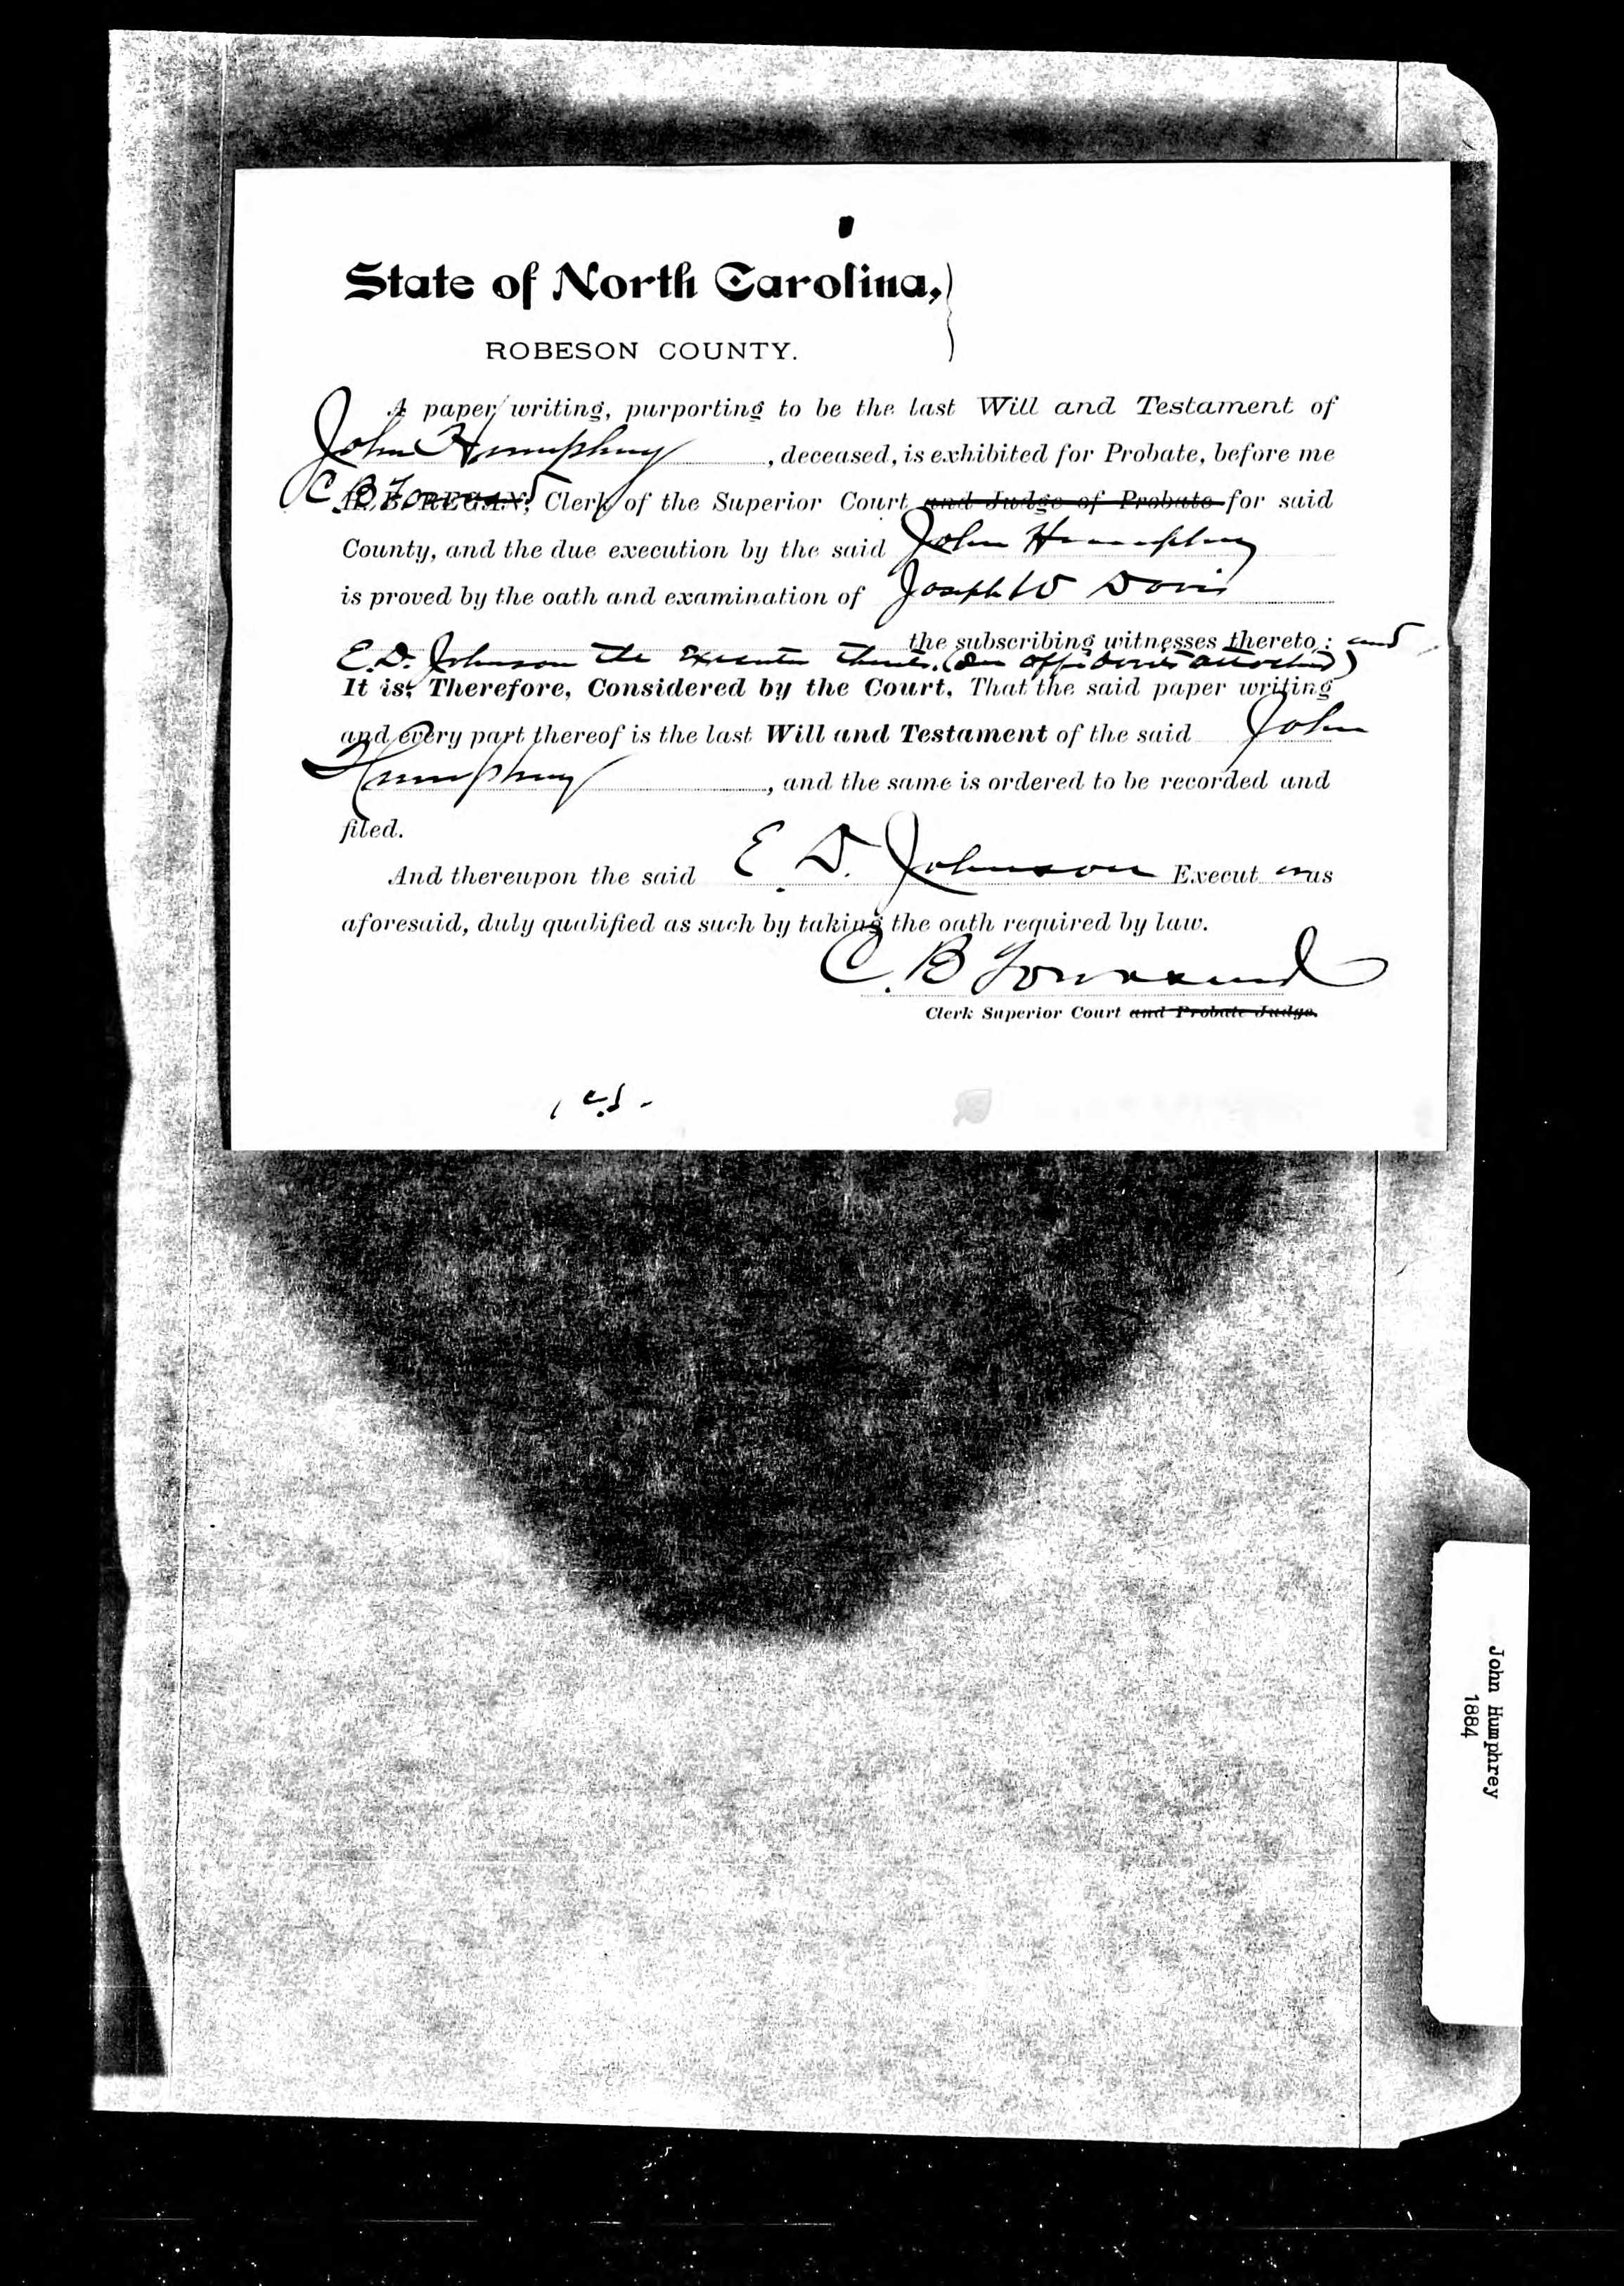 State of North Carolina,
ROBESON COUNTY.
A paper writing, purporting to be the last Will and Testament of
John Humphrey, deceased, is exhibited for Probate, before me
C. B. Townsend Clerk of the Superior Court and Judge of Probate for said
County, and the due execution by the said John Humphrey
is proved by the oath and examination of Joseph W Davis
the subscribing witnesses thereto; and
E. D. Johnson the Executor thereto. (See affidavits attached)
It is, Therefore, Considered by the Court, That the said paper writing
and every part thereof is the last Will and Testament of the said John
Humphrey, and the same is ordered to be recorded and
filed.
And thereupon the said E. D. Johnson Executor as
aforesaid, duly qualified as such by taking the oath required by law.
C. B Townsend
Clerk Superior Court and Probate Judge.
John Humphrey
1884